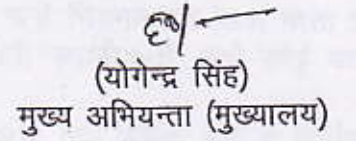 (योगेन्द्र सिंह)
मुख्य अभियन्ता (मुख्यालय)